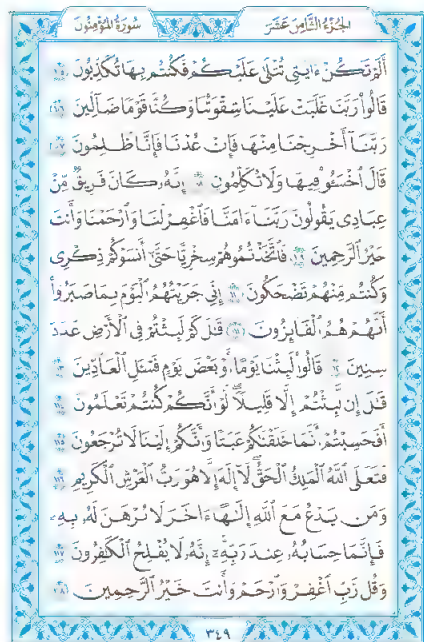 سُورَةُ المُؤْمِنُونَ الجُزْءُ الثَّامِنَ عَشَرَ
أَلَمْ تَكُنْ ءَايَٰتِى تُتْلَىٰ عَلَيْكُمْ فَكُنتُم بِهَا تُكَذِّبُونَ ١٠٥
قَالُوا۟ رَبَّنَا غَلَبَتْ عَلَيْنَا شِقْوَتُنَا وَكُنَّا قَوْمًا ضَآلِّينَ ١٠٦
رَبَّنَآ أَخْرِجْنَا مِنْهَا فَإِنْ عُدْنَا فَإِنَّا ظَٰلِمُونَ ١٠٧
قَالَ ٱخْسَـُٔوا۟ فِيهَا وَلَا تُكَلِّمُونِ ١٠٨ إِنَّهُۥ كَانَ فَرِيقٌ مِّنْ
عِبَادِى يَقُولُونَ رَبَّنَآ ءَامَنَّا فَٱغْفِرْ لَنَا وَٱرْحَمْنَا وَأَنتَ
خَيْرُ ٱلرَّٰحِمِينَ ١٠٩ فَٱتَّخَذْتُمُوهُمْ سِخْرِيًّا حَتَّىٰٓ أَنسَوْكُمْ ذِكْرِى
وَكُنتُم مِّنْهُمْ تَضْحَكُونَ ١١٠ إِنِّى جَزَيْتُهُمُ ٱلْيَوْمَ بِمَا صَبَرُوٓا۟
أَنَّهُمْ هُمُ ٱلْفَآئِزُونَ ١١١ قَٰلَ كَمْ لَبِثْتُمْ فِى ٱلْأَرْضِ عَدَدَ
سِنِينَ ١١٢ قَالُوا۟ لَبِثْنَا يَوْمًا أَوْ بَعْضَ يَوْمٍ فَسْـَٔلِ ٱلْعَآدِّينَ ١١٣
قَٰلَ إِن لَّبِثْتُمْ إِلَّا قَلِيلًا لَّوْ أَنَّكُمْ كُنتُمْ تَعْلَمُونَ ١١٤
أَفَحَسِبْتُمْ أَنَّمَا خَلَقْنَٰكُمْ عَبَثًا وَأَنَّكُمْ إِلَيْنَا لَا تُرْجَعُونَ ١١٥
فَتَعَٰلَى ٱللَّهُ ٱلْمَلِكُ ٱلْحَقُّ لَآ إِلَٰهَ إِلَّا هُوَ رَبُّ ٱلْعَرْشِ ٱلْكَرِيمِ ١١٦
وَمَن يَدْعُ مَعَ ٱللَّهِ إِلَٰهًا ءَاخَرَ لَا بُرْهَٰنَ لَهُۥ بِهِۦ
فَإِنَّمَا حِسَابُهُۥ عِندَ رَبِّهِۦٓ إِنَّهُۥ لَا يُفْلِحُ ٱلْكَٰفِرُونَ ١١٧
وَقُل رَّبِّ ٱغْفِرْ وَٱرْحَمْ وَأَنتَ خَيْرُ ٱلرَّٰحِمِينَ ١١٨
٣٤٩